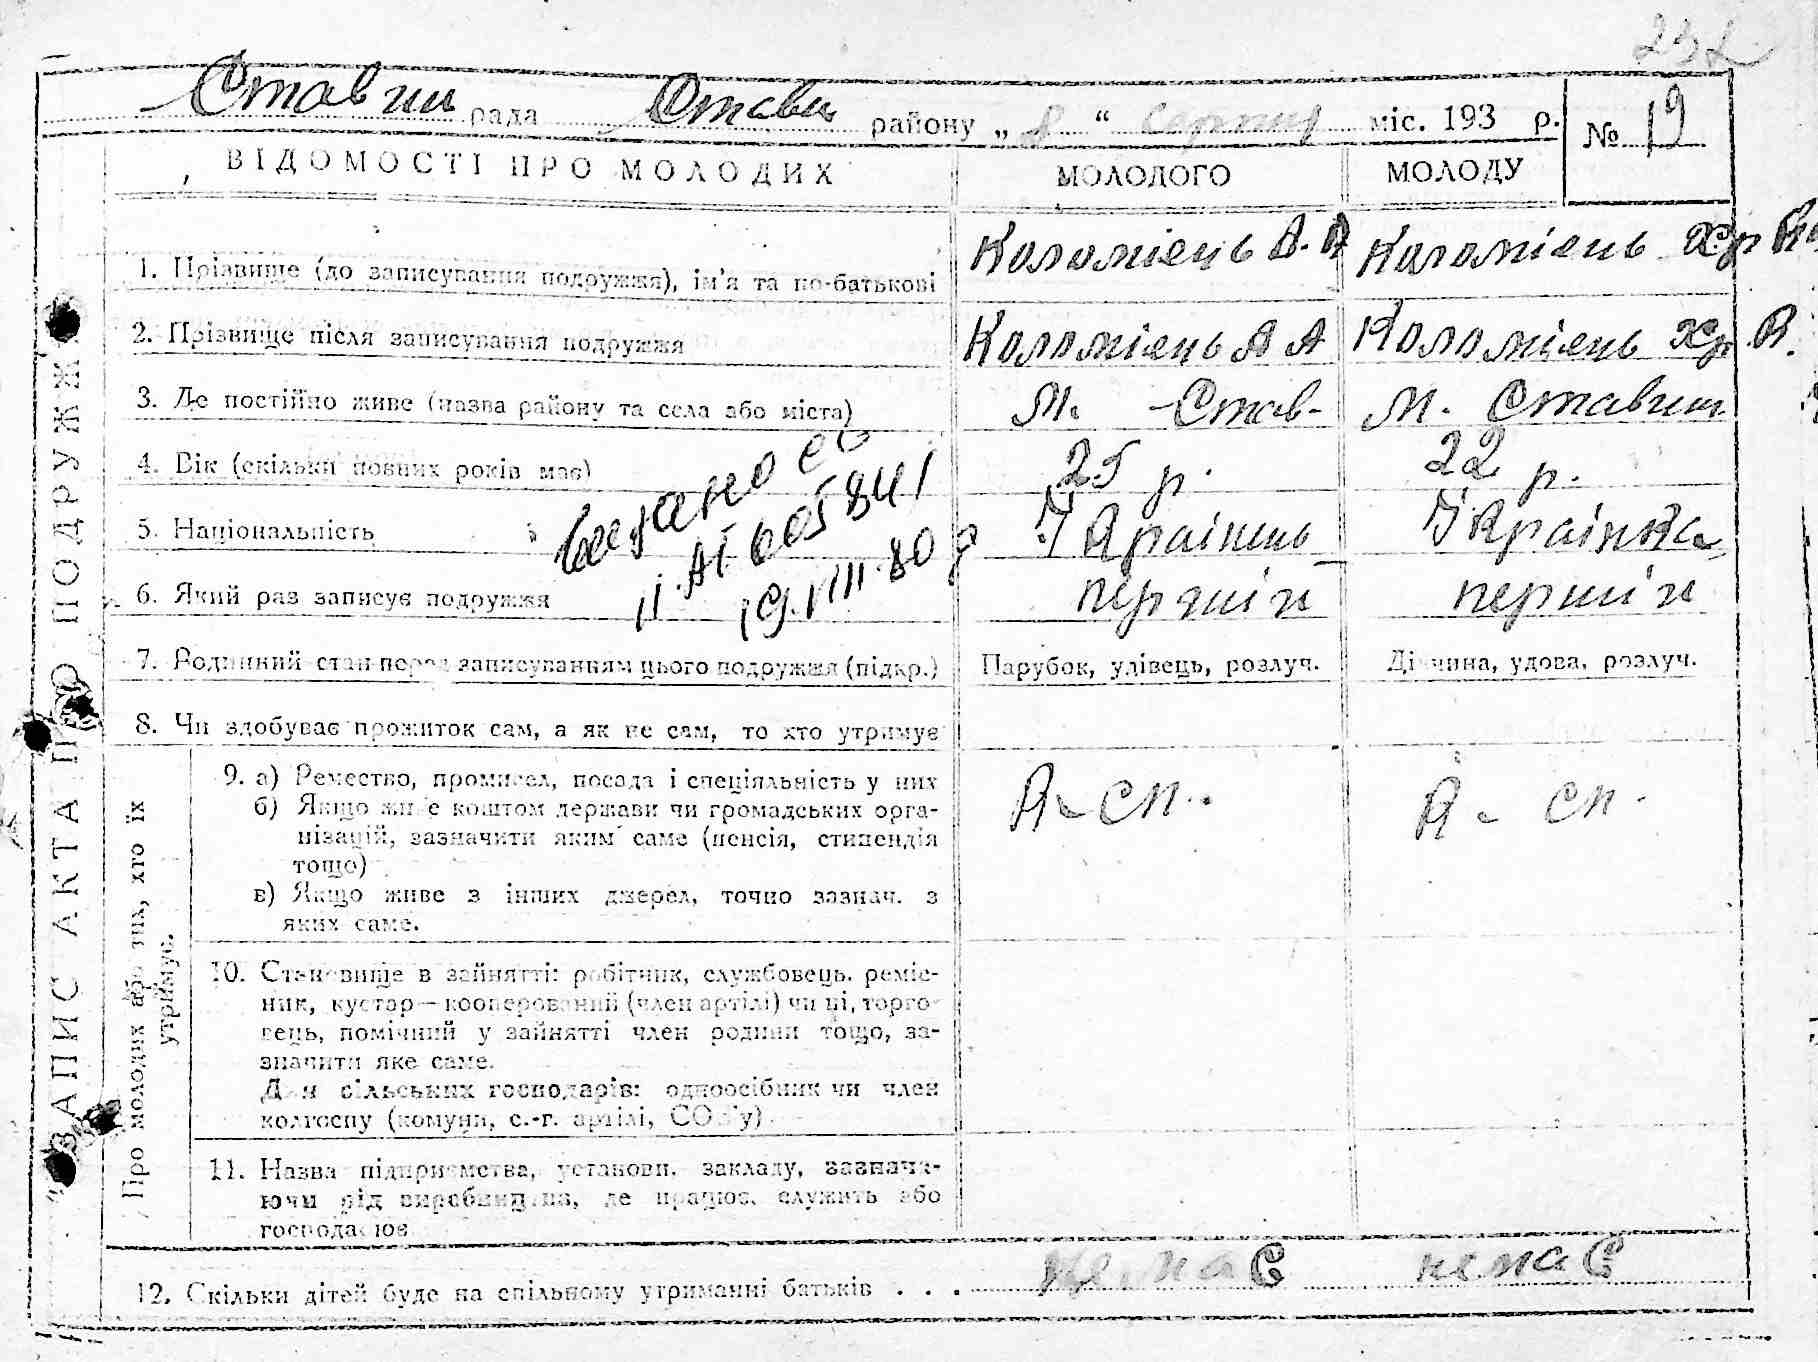 232
Ставищ рада Стави району „ 8 “ серпня міс. 193 р. № 19
ВІДОМОСТІ ПРО МОЛОДИХ МОЛОДОГО МОЛОДУ
1. Прізвище (до записування подружжя), ім'я та по-батькові Коломієць А. А Коломієць Хр
2. Прізвище після записування подружжя Коломієць А А Коломієць Хр. В.
3. Де постійно живе (назва району та села або міста) М. Став- М. Ставищ
4. Вік (скільки повних років має) 25 р. 22 р.
5. Національність Українець Українка
6. Який раз записує подружжя перший перший
II. АГ 605841
19.VIII.80 р
7. Родинний стан перед записуванням цього подружжя (підкр.) Парубок, удівець, розлуч. Дівчина, удова, розлуч.
8. Чи здобуває прожиток сам, а як не сам, то хто утримує
ЗАПИС АКТА ПРО ПОДРУЖЖЯ
Про молодих або тих, хто їх
утримує.
9. а) Ремество, промисел, посада і спеціяльність у них
б) Якщо живе коштом держави чи громадських орга-
нізацій, зазначити яким саме (пенсія, стипендія
тощо)
в) Якщо живе з інших джерел, точно зазнач. з
яких саме.
10. Становище в зайнятті: робітник, службовець, реміс-
ник, кустар—кооперований (член артілі) чи ні, торго-
вець, помічний у зайнятті член родини тощо, за-
значити яке саме.
Для сільських господарів: одноосібник чи член
колгоспу (комуни, с.-г. артілі, СОЗ'у)
11. Назва підприємства, установи, закладу, зазнача-
ючи рід виробництва, де працює, служить або
господарює
12. Скільки дітей буде на спільному утриманні батьків . . . немає немає